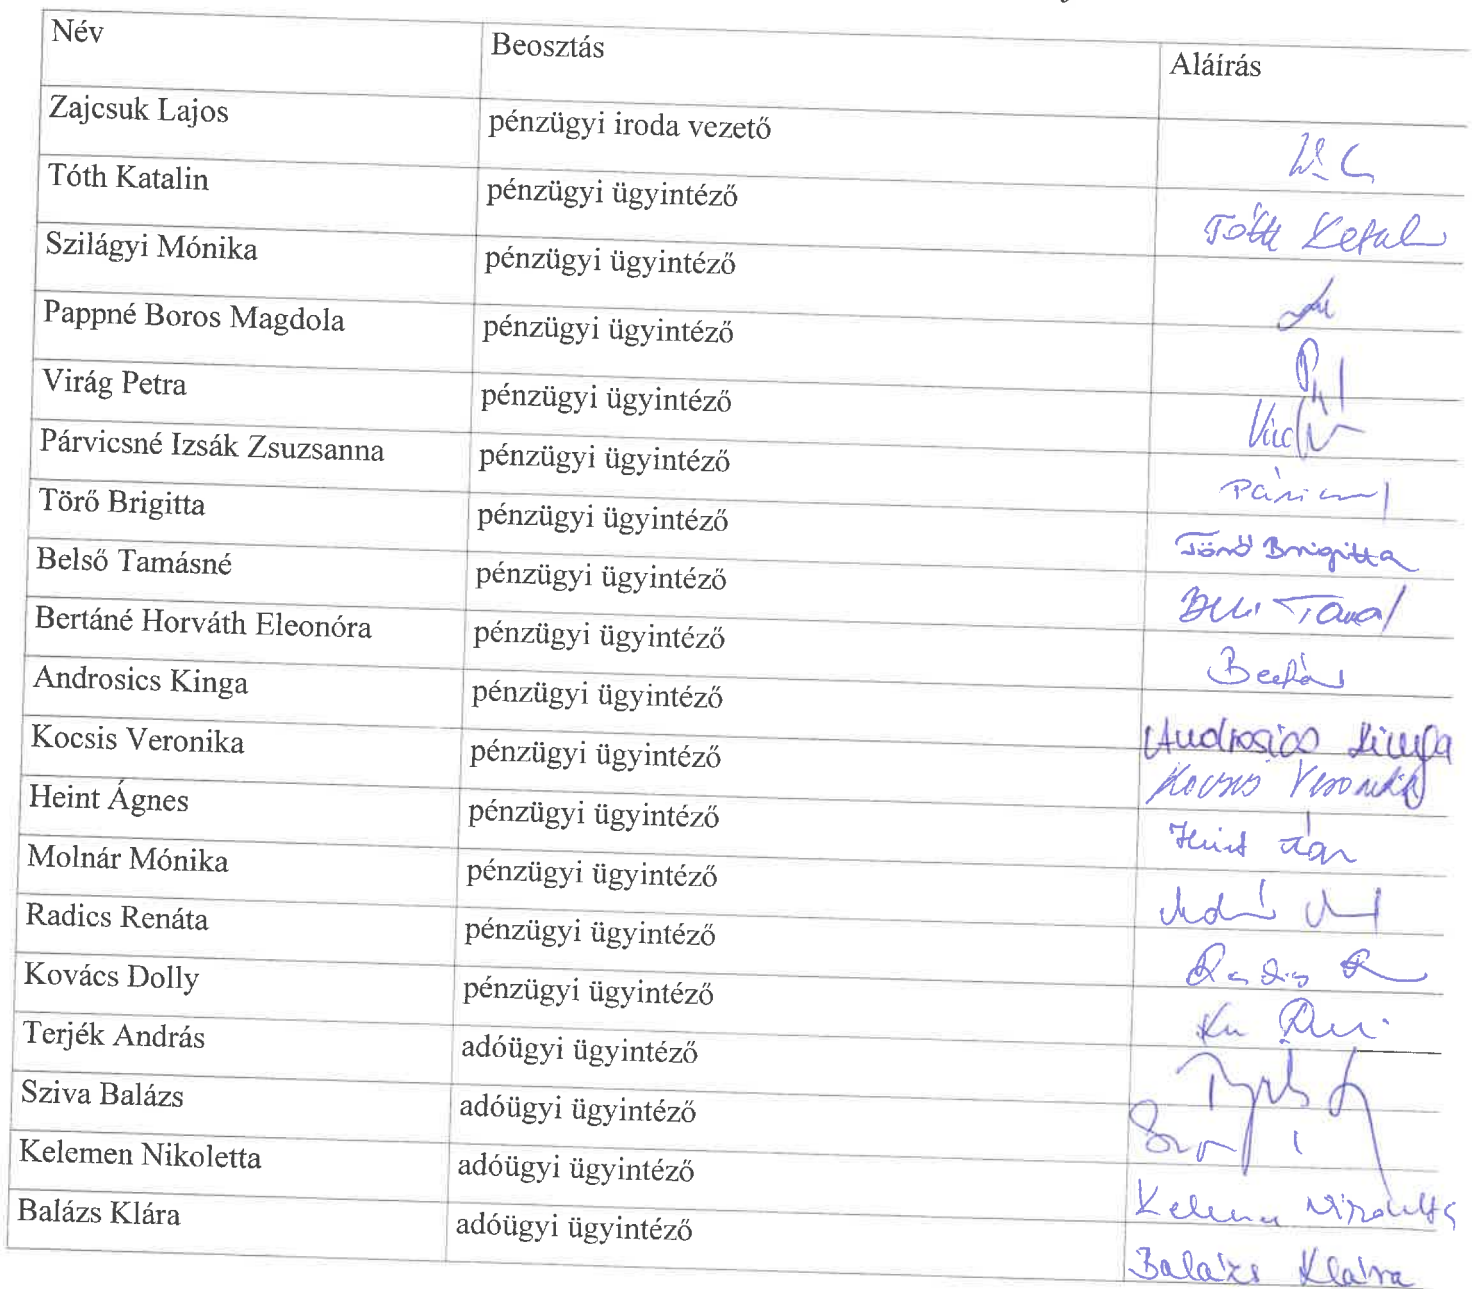 Név Beosztás Aláírás
Zajcsuk Lajos pénzügyi iroda vezető
Tóth Katalin pénzügyi ügyintéző Tóth Katal
Szilágyi Mónika pénzügyi ügyintéző
Pappné Boros Magdola pénzügyi ügyintéző
Virág Petra pénzügyi ügyintéző
Párvicsné Izsák Zsuzsanna pénzügyi ügyintéző
Törő Brigitta pénzügyi ügyintéző Törő Brigitta
Belső Tamásné pénzügyi ügyintéző
Bertáné Horváth Eleonóra pénzügyi ügyintéző
Androsics Kinga pénzügyi ügyintéző Androsics Kinga
Kocsis Veronika pénzügyi ügyintéző Kocsis Veronika
Heint Ágnes pénzügyi ügyintéző Heint
Molnár Mónika pénzügyi ügyintéző
Radics Renáta pénzügyi ügyintéző Radics R
Kovács Dolly pénzügyi ügyintéző
Terjék András adóügyi ügyintéző
Sziva Balázs adóügyi ügyintéző
Kelemen Nikoletta adóügyi ügyintéző Kelemen Nikoletta
Balázs Klára adóügyi ügyintéző Balázs Klára